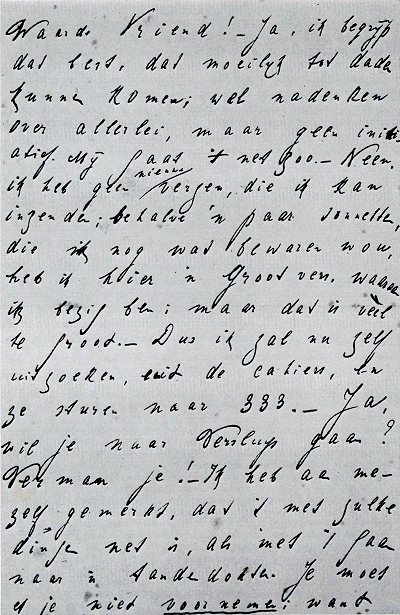 Waarde Vriend! – Ja, ik begrijp
dat best, dat moeilijk tot daden
kunnen komen; wel nadenken
over allerlei, maar geen initi-
atief. Mij gaat 't net zoo. – Neen.
nieuwe
ik heb geen verzen, die ik kan
inzenden; behalve 'n paar sonnetten,
die ik nog wat bewaren wou,
heb ik hier 'n Groot vers, waaraan
ik bezig ben; maar dat is veel
te groot. – Dus ik zal nu zelf
uitzoeken, uit de cahiers, en
ze sturen naar 333. – Ja,
wil je naar Versluys gaan?
Verman je! – Ik heb aan me-
zelf gemerkt, dat 't met zulke
dingen net is, als met 't gaan
naar 'n tandendokter. Je moet
et je niet voornemen; want